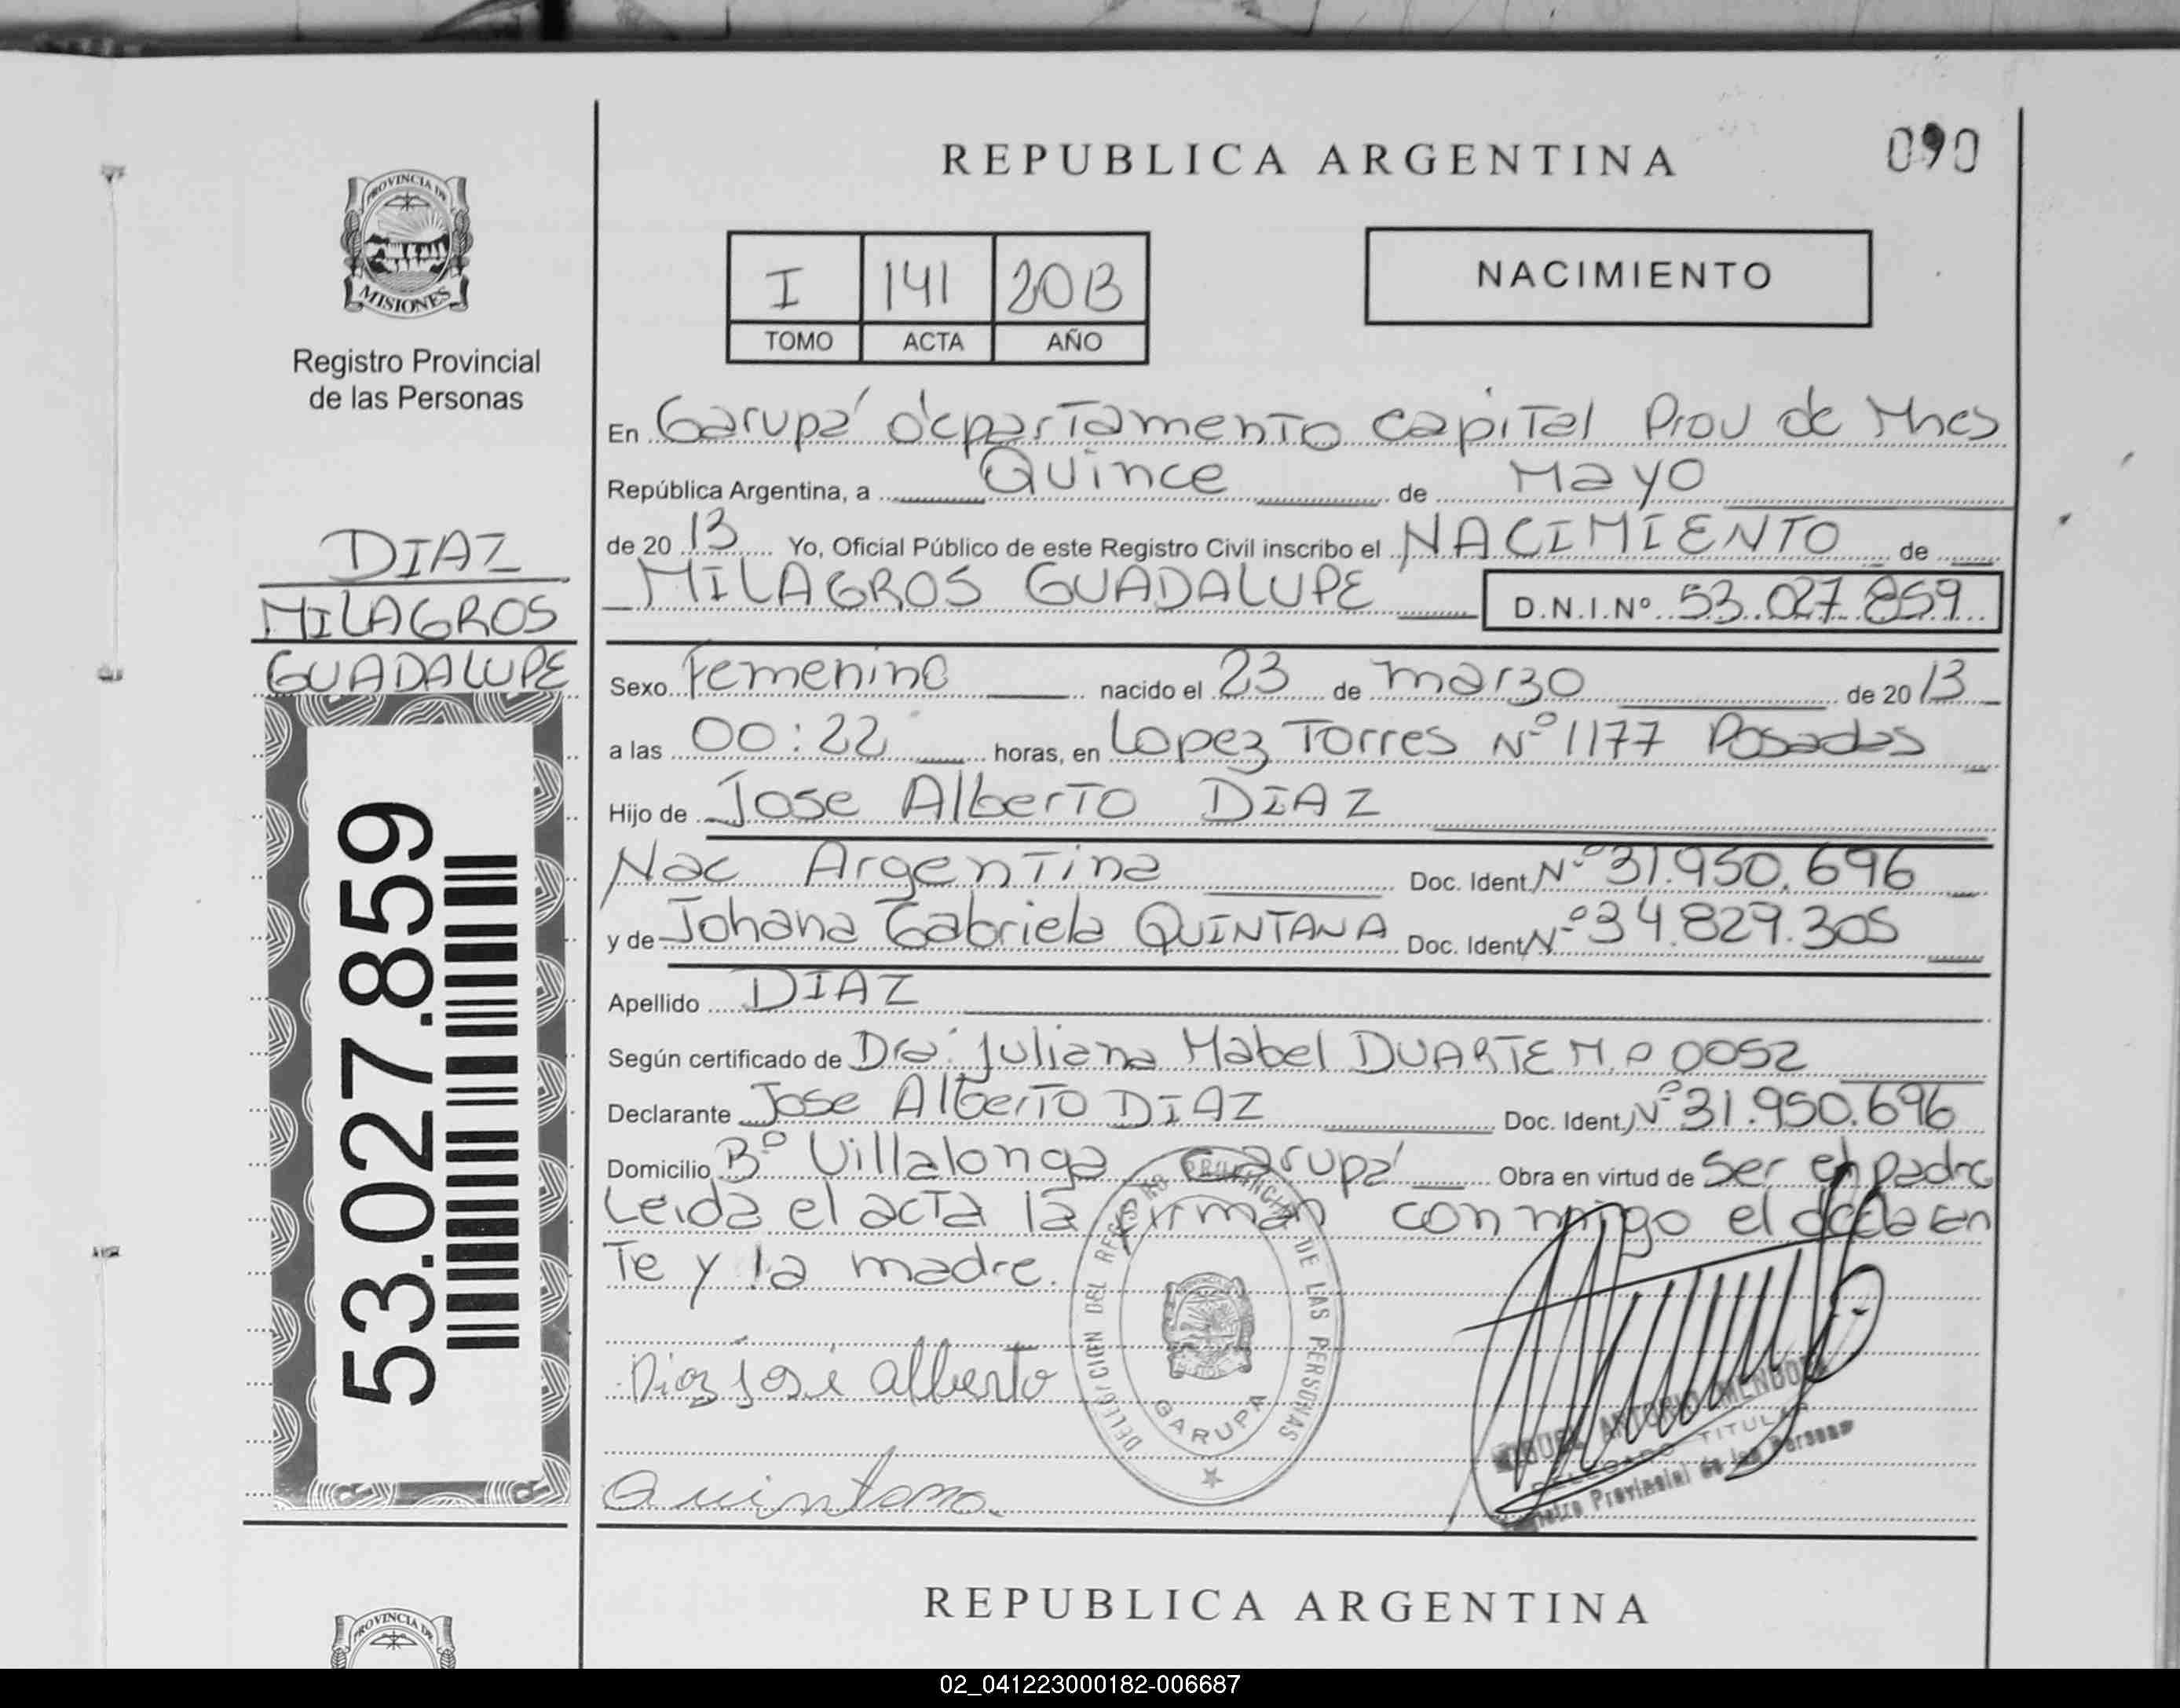 REPUBLICA ARGENTINA
090
PROVINCIA DE
MISIONES
Registro Provincial
de las Personas
I 141 2013
TOMO ACTA AÑO
NACIMIENTO
En Garupá departamento Capital Prov de Mnes
República Argentina, a Quince de Mayo
de 20 13 Yo, Oficial Público de este Registro Civil inscribo el NACIMIENTO de
MILAGROS GUADALUPE D.N.I.Nº 53.027.859
DIAZ
MILAGROS
GUADALUPE
53.027.859
Sexo Femenino nacido el 23 de marzo de 20 13
a las 00:22 horas, en Lopez Torres Nº 1177 Posadas
Hijo de Jose Alberto DIAZ
Nac Argentina Doc. Ident. Nº 31.950.696
y de Johana Gabriela QUINTANA Doc. Ident. Nº 34.829.305
Apellido DIAZ
Según certificado de Dra. Juliana Mabel DUARTE M.P 0052
Declarante Jose Alberto DIAZ Doc. Ident. Nº 31.950.696
Domicilio Bº Villalonga Garupá Obra en virtud de Ser el padre
Leida el acta la firman conmigo el decla en
Te y la madre.
DELEGACION DEL REGISTRO PROVINCIAL DE LAS PERSONAS
GARUPA
Diaz josé alberto
Quintana
MIGUEL ANTONIO MENDOZA
DELEGADO TITULAR
Registro Provincial de las Personas
REPUBLICA ARGENTINA
PROVINCIA DE
02_041223000182-006687